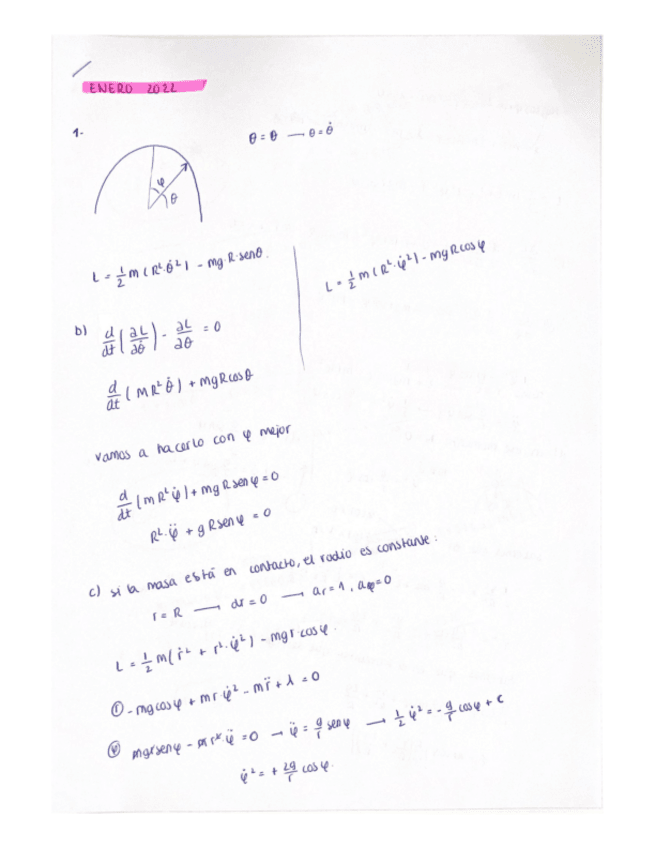 ENERO 2022
1-
θ = θ → θ = θ̇
φ
θ
L = 1/2 m (R²·θ̇²) - mg·R·senθ.
L = 1/2 m (R²·φ̇²) - mgRcosφ
b) d/dt (∂L/∂θ̇) - ∂L/∂θ = 0
d/dt (MR²θ̇) + mgRcosθ
vamos a hacerlo con φ mejor
d/dt (mR²φ̇) + mgRsenφ = 0
R²·φ̈ + gRsenφ = 0
c) si la masa está en contacto, el radio es constante:
r = R → dr = 0 → ar = 1, aφ = 0
L = 1/2 m (ṙ² + r²·φ̇²) - mgr·cosφ.
ⓡ - mgcosφ + mr·φ̇² - mr̈ + λ = 0
ⓥ mgrsenφ - mr²φ̈ = 0 → φ̈ = g/r senφ → 1/2 φ̇² = - g/r cosφ + c
φ̇² = + 2g/r cosφ.